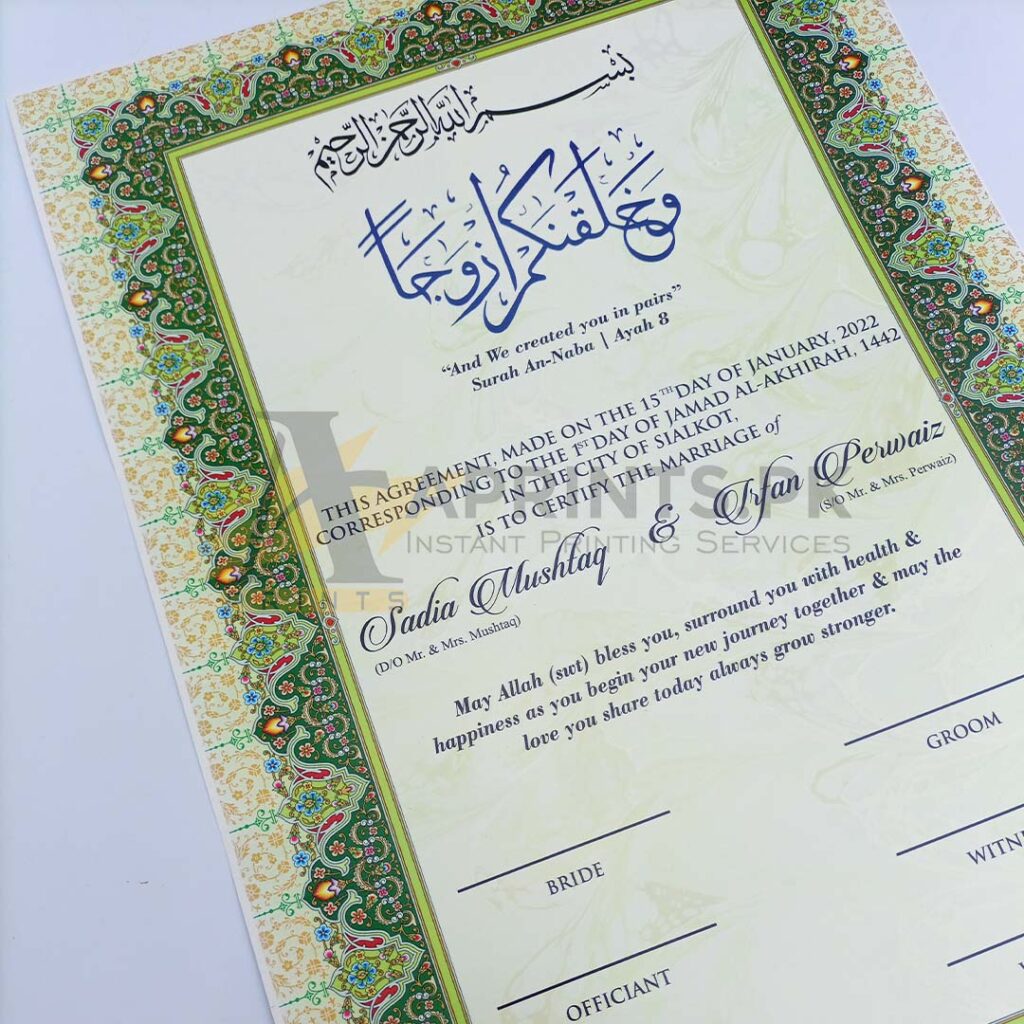 بسم الله الرحمن الرحيم
وَخَلَقْنَكُمْ أَزْوَجًا
“And We created you in pairs”
Surah An-Naba | Ayah 8
THIS AGREEMENT, MADE ON THE 15TH DAY OF JANUARY, 2022
CORRESPONDING TO THE 1ST DAY OF JAMAD AL-AKHIRAH, 1442
IN THE CITY OF SIALKOT,
IS TO CERTIFY THE MARRIAGE of
Sadia Mushtaq & Irfan Perwaiz
(D/O Mr. & Mrs. Mushtaq) (S/O Mr. & Mrs. Perwaiz)
May Allah (swt) bless you, surround you with health &
happiness as you begin your new journey together & may the
love you share today always grow stronger.
GROOM
BRIDE
OFFICIANT
APRINTS.PK
INSTANT PRINTING SERVICES